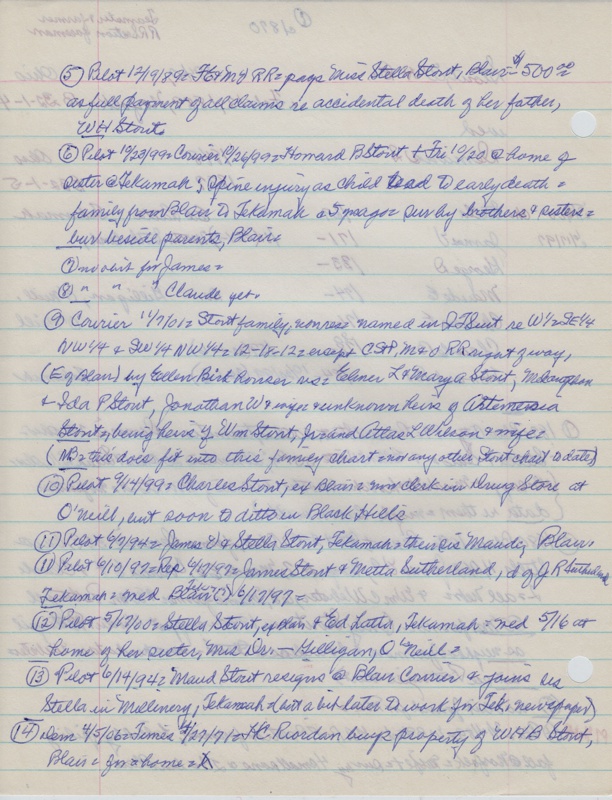 ⑤ Pilot 12/19/89 = FE & MV RR = pays Miss Stella Stout, Blair = $500.00
as full payment of all claims re accidental death of her father,
WH Stout
⑥ Pilot 10/23/99 = Courier 10/26/99 = Howard B Stout + Fri 10/20 @ home of
sister @ Tekamah; Spine injury as child lead to early death =
family from Blair to Tekamah a 5 mago = sur by brothers & sisters =
bur beside parents, Blair =
⑦ no obit for James =
⑧ " " " Claude yet.
⑨ Courier 11/7/01 = Stout family, nonres = named in J T Suit re W½ = SE¼
NW¼ & SW¼ NW¼ = 12-18-12 = except CStP, M & O RR right of way,
(E of Blair) by Ellen Birk vs = Elmer L & Mary A Stout,
& Ida P Stout, Jonathan W & wife & unknown heirs of Artemesia
Stout, being heirs of Wm Stout, Jr and Attas L Wilson & wife =
( = this does fit into this family chart = nor any other Stout chart to date)
⑩ Pilot 9/14/99 = Charles Stout, ex Blair = now clerk in Drug Store at
O'Neill, but soon to ditto in Black Hills
⑪ Pilot 6/7/94 = James W & Stella Stout, Tekamah = their sis Maude, Blair =
⑪ Pilot 6/10/97 = Rep 6/17/97 = James Stout & Metta Sutherland, d of J R Sutherland
Tekamah = wed 6/17/97 =
⑫ Pilot 5/17/00 = Stella Stout, ex Blair & Ed Latta, Tekamah = wed 5/16 at
home of her sister, Mrs Dr. — Gilligan, O'Neill =
⑬ Pilot 6/14/94 = Maud Stout resigns @ Blair Courier & joins sis
Stella in Millinery, Tekamah (but a bit later to work for Tek, newspaper)
⑭ Dem 4/5/06 = Times 4/27/71 = HC Riordan buys property of WHB Stout,
Blair = for a home = X